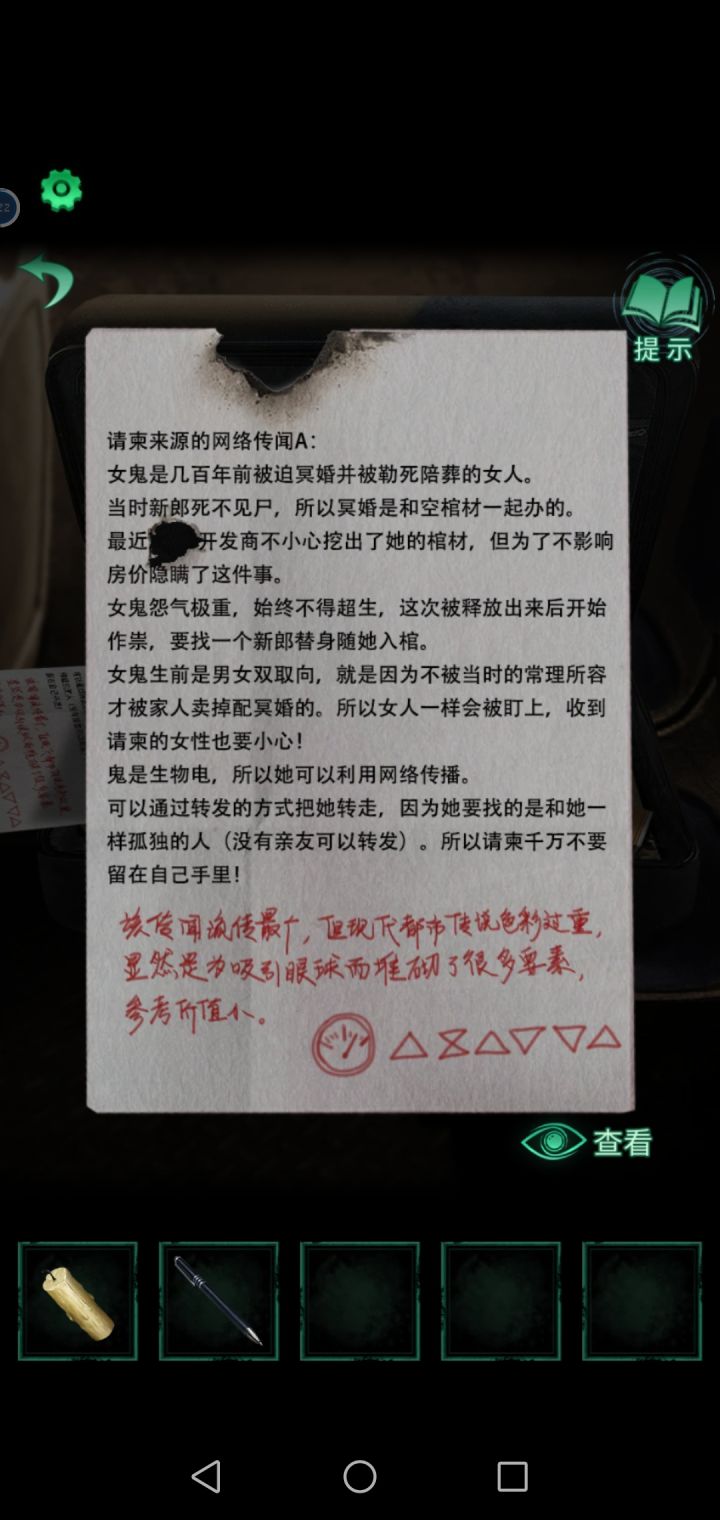 22
提示
请柬来源的网络传闻A：
女鬼是几百年前被迫冥婚并被勒死陪葬的女人。
当时新郎死不见尸，所以冥婚是和空棺材一起办的。
最近 开发商不小心挖出了她的棺材，但为了不影响
房价隐瞒了这件事。
女鬼怨气极重，始终不得超生，这次被释放出来后开始
作祟，要找一个新郎替身随她入棺。
女鬼生前是男女双取向，就是因为不被当时的常理所容
才被家人卖掉配冥婚的。所以女人一样会被盯上，收到
请柬的女性也要小心！
鬼是生物电，所以她可以利用网络传播。
可以通过转发的方式把她转走，因为她要找的是和她一
样孤独的人（没有亲友可以转发）。所以请柬千万不要
留在自己手里！
该传闻流传最广，但现代都市传说色彩过重，
显然是为吸引眼球而堆砌了很多要素，
参考价值小。
查看